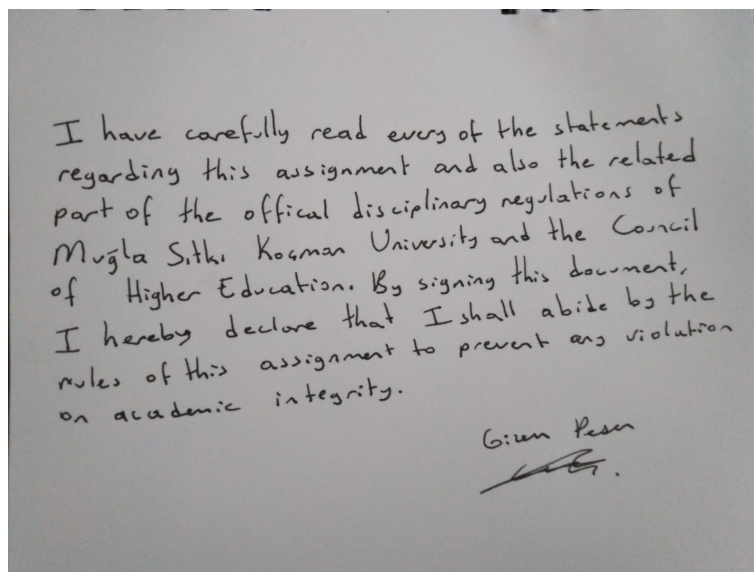 I have carefully read every of the statements
regarding this assignment and also the related
part of the offical disciplinary regulations of
Muğla Sıtkı Koçman University and the Council
of Higher Education. By signing this document,
I hereby declare that I shall abide by the
rules of this assignment to prevent any violation
on academic integrity.